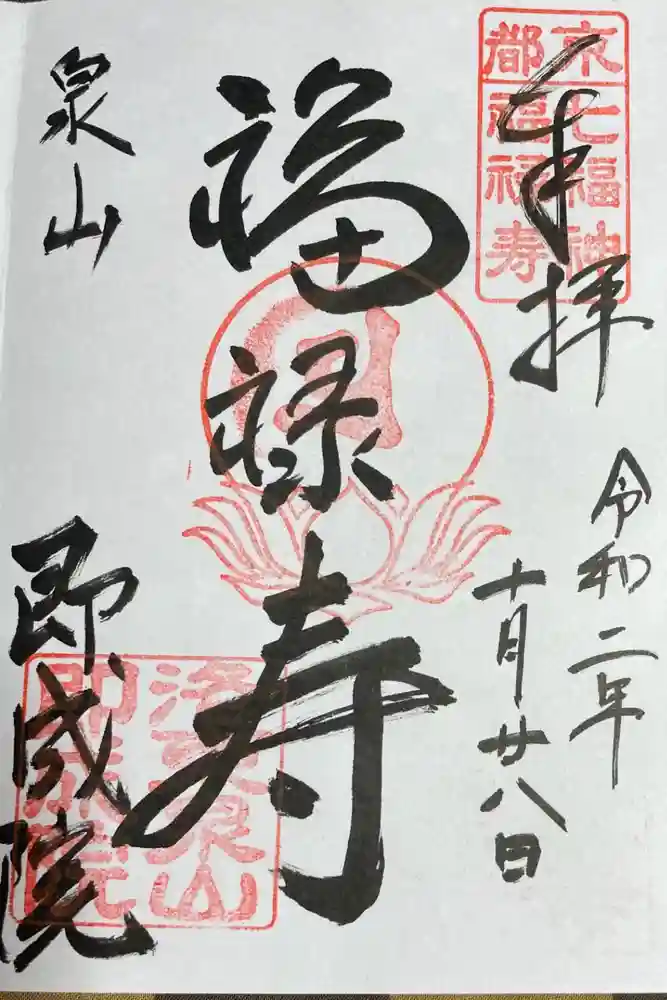 奉拝
令和二年
十月廿八日
福禄寿
泉山
即成院
京七福神
都福禄寿
洛東泉山
即成院